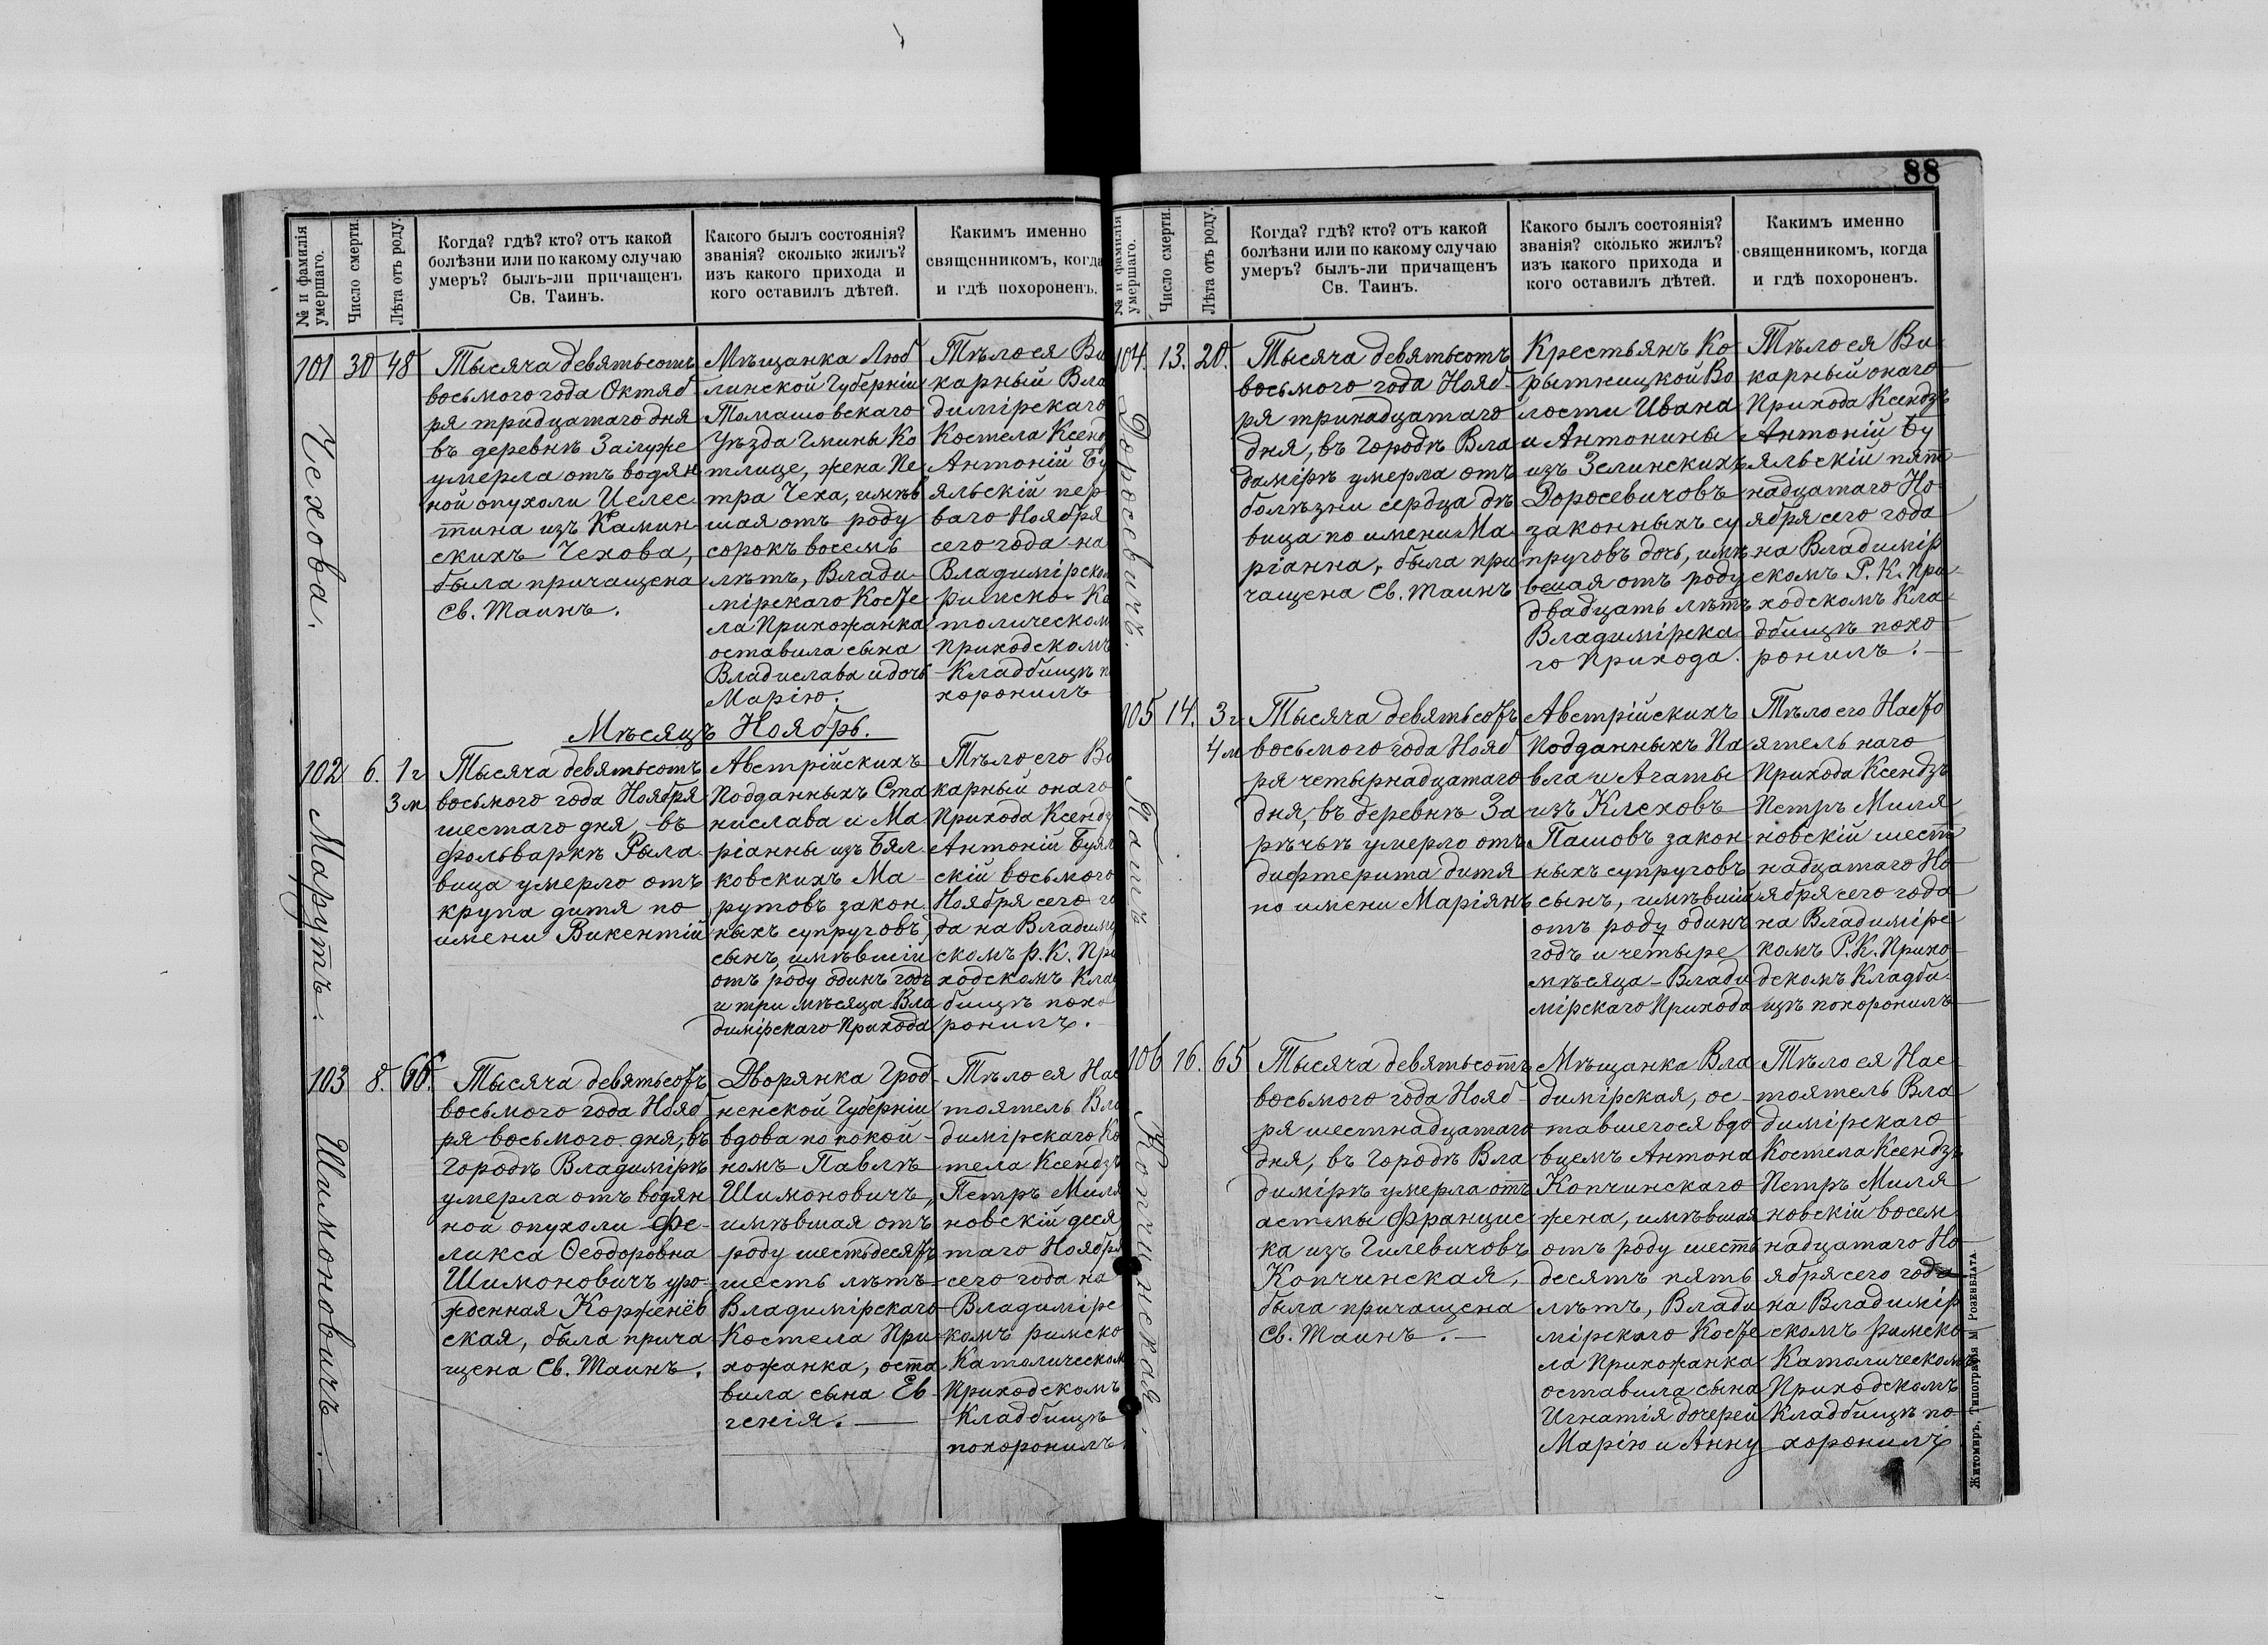 88
№ и фамилія умершаго.
Число смерти.
Лѣта отъ роду.
Когда? гдѣ? кто? отъ какой
болѣзни или по какому случаю
умеръ? былъ-ли причащенъ
Св. Таинъ.
Какого былъ состоянія?
званія? сколько жилъ?
изъ какого прихода и
кого оставилъ дѣтей.
Какимъ именно
священникомъ, когда
и гдѣ похороненъ.
101 30 48
Чехова.
Тысяча девятьсотъ
восьмого года Октяб
ря тридцатаго дня
въ деревнѣ Залуже
умерла отъ водян
ной опухоли Целес
тина изъ Камин
скихъ Чехова,
была причащена
Св. Таинъ.
Мѣщанка Люб
линской Губерніи
Томашовскаго
Уѣзда Гмины Ко
тлице, жена Пе
тра Чеха, имѣв
шая отъ роду
сорокъ восемь
лѣтъ, Влади-
мірскаго Косте
ла Прихожанка
оставила сына
Владислава и дочь
Марію.
Тѣло ея Ви
карный Вла
димірскаго
Костела Ксенд
Антоній Бу
яльскій пер
ваго Ноября
сего года на
Владимірском
Римско-Ка
толическом
Приходскомъ
Кладбищѣ п
хоронилъ
Мѣсяцъ Ноябрь.
102 6. 1 г
3 м
Марутъ.
Тысяча девятьсотъ
восьмого года Ноября
шестаго дня въ
фольваркѣ Рыла
вица умерло отъ
крупа дитя по
имени Викентій
Австрійскихъ
Подданныхъ Ста
нислава и Ма
ріанны изъ Бял
ковскихъ Ма-
рутовъ закон
ныхъ супруговъ,
сынъ, имѣвшій
отъ роду одинъ годъ
и три мѣсяца Вла
димірскаго Прихода
Тѣло его Ви
карный онаго
Прихода Ксендз
Антоній Буял
скій восьмого
Ноября сего го
да на Владимір
скомъ Р. К. При
ходскомъ Клад
бищѣ похо
ронилъ.
103 8. 66.
Шимоновичъ.
Тысяча девятьсотъ
восьмого года Нояб
ря восьмого дня, въ
Городѣ Владимірѣ
умерла отъ водян
ной опухоли Фе-
ликса Ѳеодоровна
Шимоновичъ уро-
жденная Корженёв
ская, была прича
щена Св. Таинъ.
Дворянка Грод-
ненской Губерніи
вдова по покой-
номъ Павлѣ
Шимоновичъ,
имѣвшая отъ
роду шестьдесятъ
шесть лѣтъ
Владимірскаго
Костела При-
хожанка, оста
вила сына Ев-
генія.
Тѣло ея Нас
тоятель Вла
димірскаго Ко
тела Ксендзъ
Петръ Миля
новскій деся
таго Ноября
сего года на
Владимірс
комъ Римско
Католическом
Приходскомъ
Кладбищѣ
похоронилъ
№ и фамилія умершаго.
Число смерти.
Лѣта отъ роду.
Когда? гдѣ? кто? отъ какой
болѣзни или по какому случаю
умеръ? былъ-ли причащенъ
Св. Таинъ.
Какого былъ состоянія?
званія? сколько жилъ?
изъ какого прихода и
кого оставилъ дѣтей.
Какимъ именно
священникомъ, когда
и гдѣ похороненъ.
104. 13. 20.
Доросевичъ.
Тысяча девятьсотъ
восьмого года Нояб-
ря тринадцатаго
дня, въ Городѣ Вла
димірѣ умерла отъ
болѣзни сердца дѣ
вица по имени Ма
ріанна, была при
чащена Св. Таинъ
Крестьянъ Ко-
рытницкой Во
лости Ивана
и Антонины
изъ Зелинскихъ
Доросевичовъ
законныхъ су
пруговъ дочь, имѣ
вшая отъ роду
двадцать лѣтъ
Владимірска
го Прихода.
Тѣло ея Ви-
карный онаго
Прихода Ксендзъ
Антоній Бу
яльскій пят
надцатаго Но-
ября сего года
на Владимір
скомъ Р. К. При-
ходскомъ Кла-
дбищѣ похо
ронилъ.
105 14. 3 г
4 м
Пашъ
Тысяча девятьсотъ
восьмого года Нояб
ря четырнадцатаго
дня, въ деревнѣ За
рѣчьѣ умерло отъ
дифтерита дитя
по имени Маріянъ
Австрійскихъ
Подданныхъ Па
вла и Агаты
изъ Клеховъ
Пашовъ закон
ныхъ супруговъ
сынъ, имѣвшій
отъ роду одинъ
годъ и четыре
мѣсяца Влади
мірскаго Прихода
Тѣло его Насто
ятель наго
Прихода Ксендзъ
Петръ Миля
новскій шест
надцатаго Но
ября сего года
на Владимірс
комъ Р. К. Прихо
дскомъ Кладби-
щѣ похоронилъ
106 16. 65
Копчинская.
Тысяча девятьсотъ
восьмого года Нояб-
ря шестнадцатаго
дня, въ Городѣ Вла
димірѣ умерла отъ
астмы Францис
ка изъ Гилевичовъ
Копчинская,
была причащена
Св. Таинъ.
Мѣщанка Вла
димірская, ос-
тавшегося вдо
вцемъ Антона
Копчинскаго
жена, имѣвшая
отъ роду шесть
десятъ пять
лѣтъ, Влади
мірскаго Косте
ла Прихожанка
оставила сына
Игнатія дочерей
Марію и Анну
Тѣло ея Нас-
тоятель Вла
димірскаго
Костела Ксендзъ
Петръ Миля
новскій восем
надцатаго Но
ября сего года
на Владимір
скомъ Римско
Католическомъ
Приходскомъ
Кладбищѣ по-
хоронилъ
Житомиръ, Типографія М. Розенблата